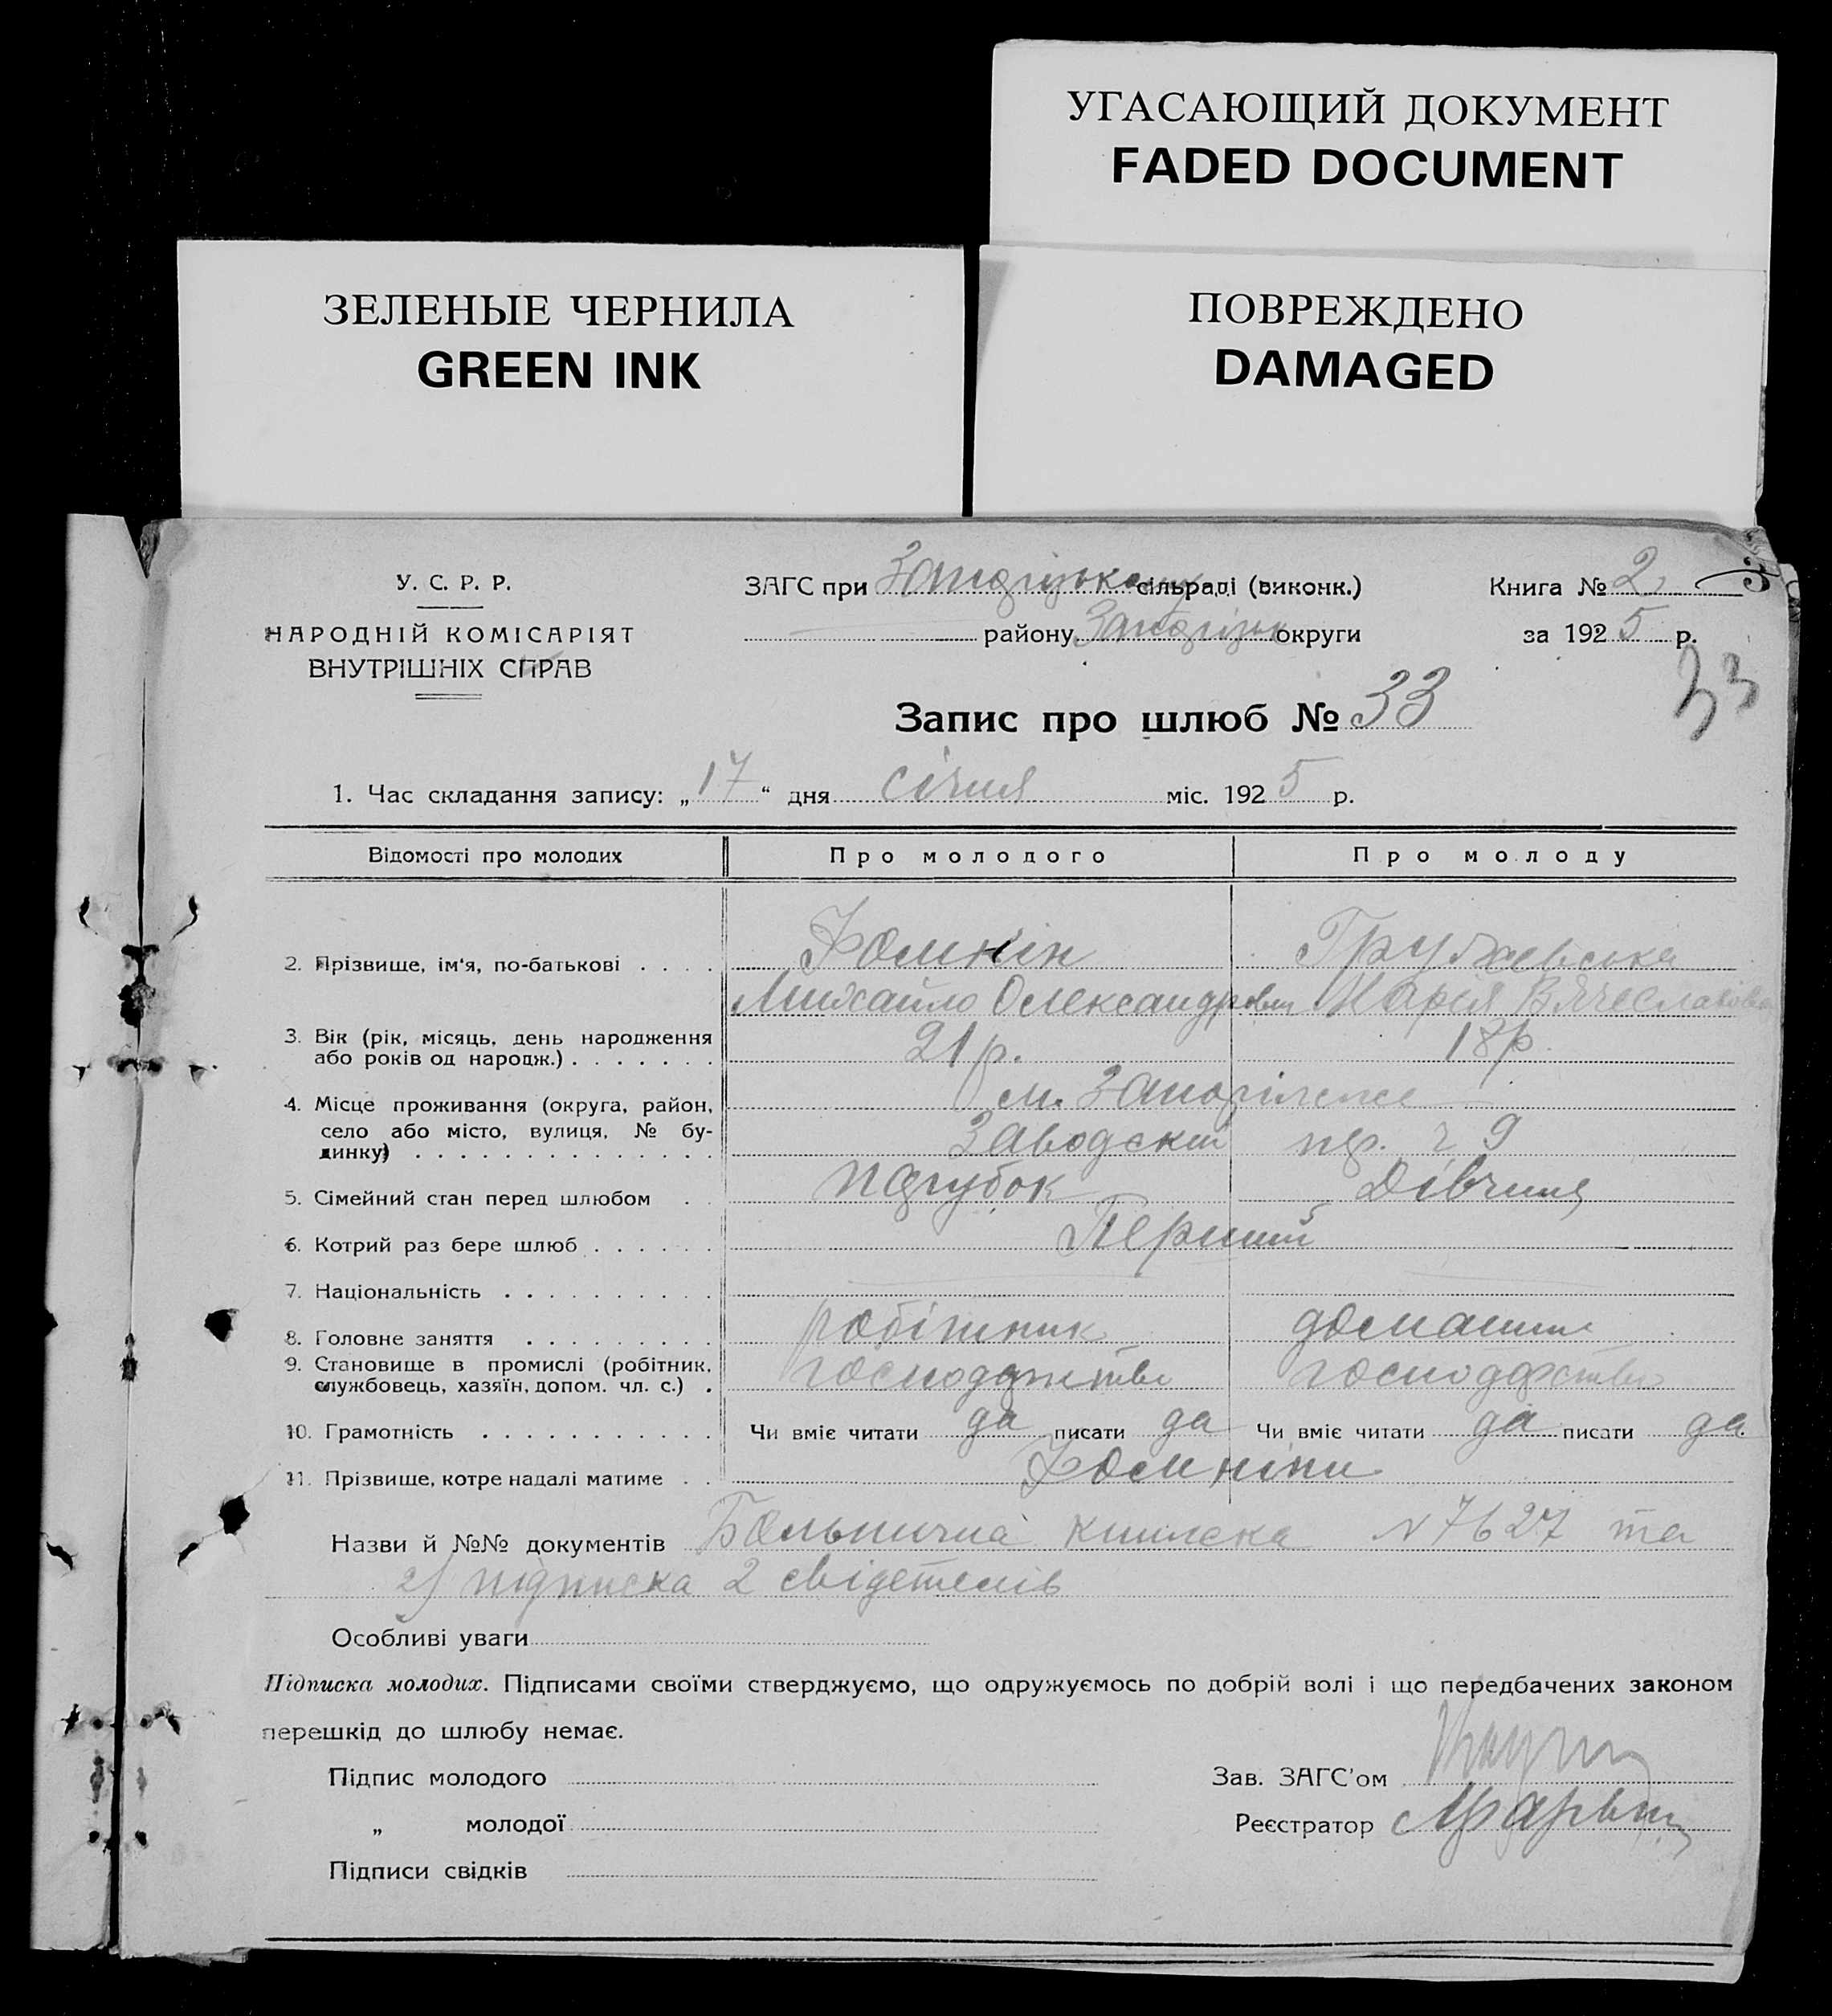 УГАСАЮЩИЙ ДОКУМЕНТ
FADED DOCUMENT
ЗЕЛЕНЫЕ ЧЕРНИЛА
GREEN INK
ПОВРЕЖДЕНО
DAMAGED
У. С. Р. Р.
НАРОДНІЙ КОМІСАРІЯТ
ВНУТРІШНІХ СПРАВ
ЗАГС при сільраді (виконк.)
району округи
Книга № 2
за 1925 р.
33
Запис про шлюб № 33
1. Час складання запису: „17“ дня січня міс. 1925 р.
Відомості про молодих Про молодого Про молоду
2. Прізвище, ім'я, по-батькові . . . . Фомнін
Михайло Олександрович Марія Вячеславовна
3. Вік (рік, місяць, день народження
або років од народж.) . . . . . . . 21 р. 18 р.
4. Місце проживання (округа, район,
село або місто, вулиця, № бу-
динку) . . . . . . . . . . . . . . м. Запоріжже
Заводскій пр. ч 9
5. Сімейний стан перед шлюбом . . парубок дівчина
6. Котрий раз бере шлюб . . . . . . Перший
7. Національність . . . . . . . . . .
8. Головне заняття . . . . . . . . . робітник домашне
9. Становище в промислі (робітник,
службовець, хазяїн, допом. чл. с.) . господарство
10. Грамотність . . . . . . . . . . . Чи вміє читати да писати да Чи вміє читати да писати да
11. Прізвище, котре надалі матиме . . Фомніни
Назви й №№ документів Больнична книжка N 7627 та
2) підписка 2 свідетелів
Особливі уваги
Підписка молодих. Підписами своїми стверджуємо, що одружуємось по добрій волі і що передбачених законом
перешкід до шлюбу немає.
Підпис молодого
„ молодої
Підписи свідків
Зав. ЗАГС'ом
Реєстратор